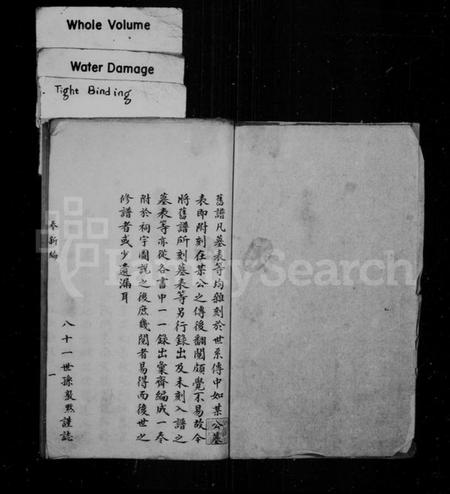 Whole Volume
Water Damage
Tight Binding
舊譜凡墓表等均雖刻於世系傳中如某公墓
表即附刻在某公之傳後翻閱頗覺不易故今
將舊譜所刻墓表等另行錄出及未刻入譜之
墓表等亦從各書中一一錄出彙齊編成一卷
附於祠宇圖說之後庶幾閱者易得而後世之
修譜者或少遺漏耳
八十一世孫 謹誌
卷新編
一
FamilySearch